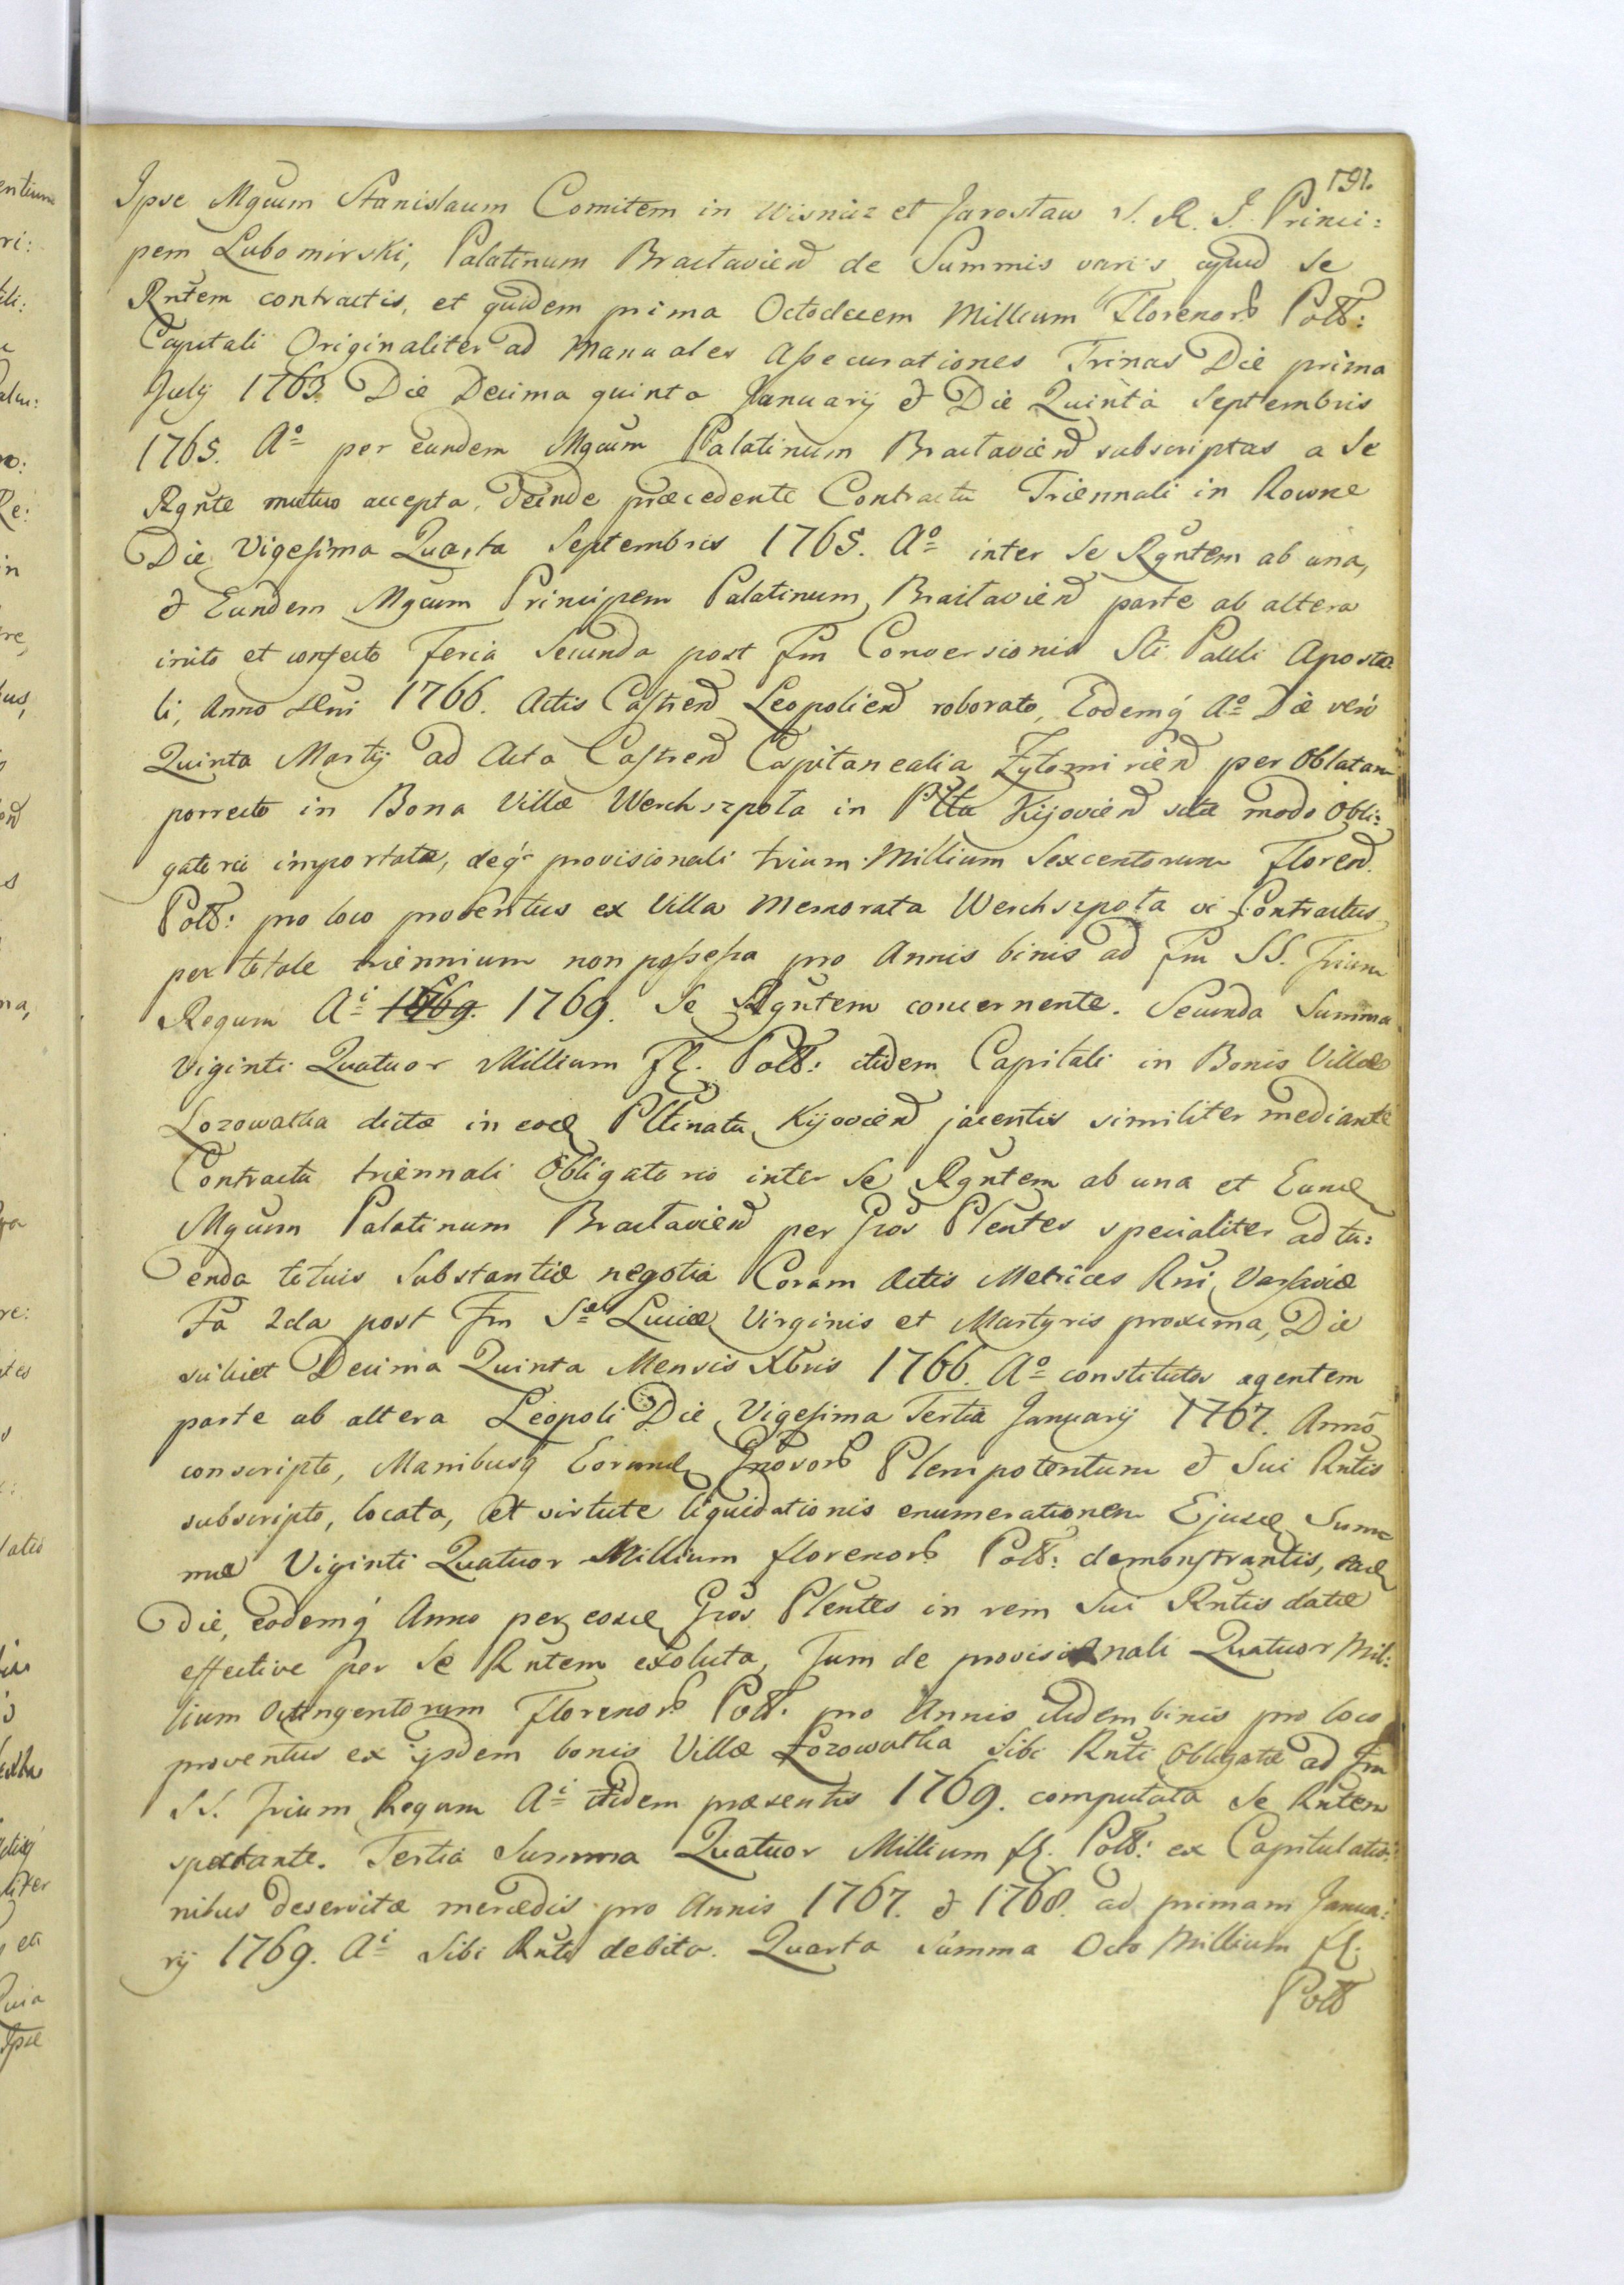 191.
Ipse Mgcum Stanislaum Comitem in Wisnicz et Jarosław S. R. I. Princi:
pem Lubomirski, Palatinum Braclavien de Summis variis apud se
Rntem contractis, et quidem prima Octodecem Millium Florenor Poll:
Capitali Originaliter ad Manuales Assecurationes Trinas Die prima
July 1763. Die Decima quinta January & Die Quinta Septembris
1765. Aº per eundem Mgcum Palatinum Braclavien subscriptas a Se
Rgnte mutuo accepta, deinde præcedente Contractu Triennali in Rowne
Die Vigesima Quarta Septembris 1765. Aº inter Se Rgntem ab una,
& Eundem Mgcum Principem Palatinum Braclavien parte ab altera
inito et confecto Feria Secunda post Fm Conversionis Sti Pauli Aposto
li, Anno Dni 1766. Actis Castren Leopolien roborato, Eodemq Aº Die vero
Quinta Martij ad Acta Castren Capitanealia Zytomirien per Oblatam
porrecto in Bona Villæ Werchszpola in Pltu Kijovien sitæ modo Obli:
gatorio importata, deq provisionali trium Millium Sexcentorum Floren
Poll: pro loco proventus ex Villa Memorata Werchszpola vi Contractus
per totale triennium non possessa pro Annis binis ad Fm SS. Trium
Regum Ai 1669. 1769. Se Rgntem concernente. Secunda Summa
Viginti Quatuor Millium Fl. Poll: itidem Capitali in Bonis Villæ
Lozowatka dictæ in eod Pltinatu Kijovien jacentis similiter mediante
Contractu triennali Obligatorio inter Se Rgntem ab una et Eund
Mgcum Palatinum Braclavien per Gsos Plentes specialiter ad tu:
enda totius Substantiæ negotia Coram Actis Metrices Rni Varsaviæ
Fa 2da post Fm Sæ Luciæ Virginis et Martyris proxima, Die
scilicet Decima Quinta Mensis Xbris 1766. Aº constitutos agentem
parte ab altera Leopoli Die Vigesima Tertia January 1767. Anno
conscripto, Manibusq Eorund Gnosor Plenipotentum & Sui Rntis
subscripto, locata, et virtute liquidationis enumerationem Ejusd Sum
mæ Viginti Quatuor Millium florenor Poll: demonstrantis, ead
Die, eodemq Anno per eosd Gsos Plentes in rem Sui Rntis datæ
effective per Se Rntem exoluta, Tum de provisionali Quatuor Mil:
lium Octingentorum Florenor Poll. pro Annis itidem binis pro loco
proventus ex ijsdem bonis Villæ Lozowatka Sibi Rnti Obligatæ ad Fm
SS. Trium Regum Ai itidem præsentis 1769. computata Se Rntem
spectante. Tertia Summa Quatuor Millium fl. Poll: ex Capitulatio:
nibus deservitæ mercedis pro Annis 1767. & 1768. ad primam Janua:
rij 1769. Ai Sibi Rnti debita. Quarta Summa Octo Millium fl.
Poll